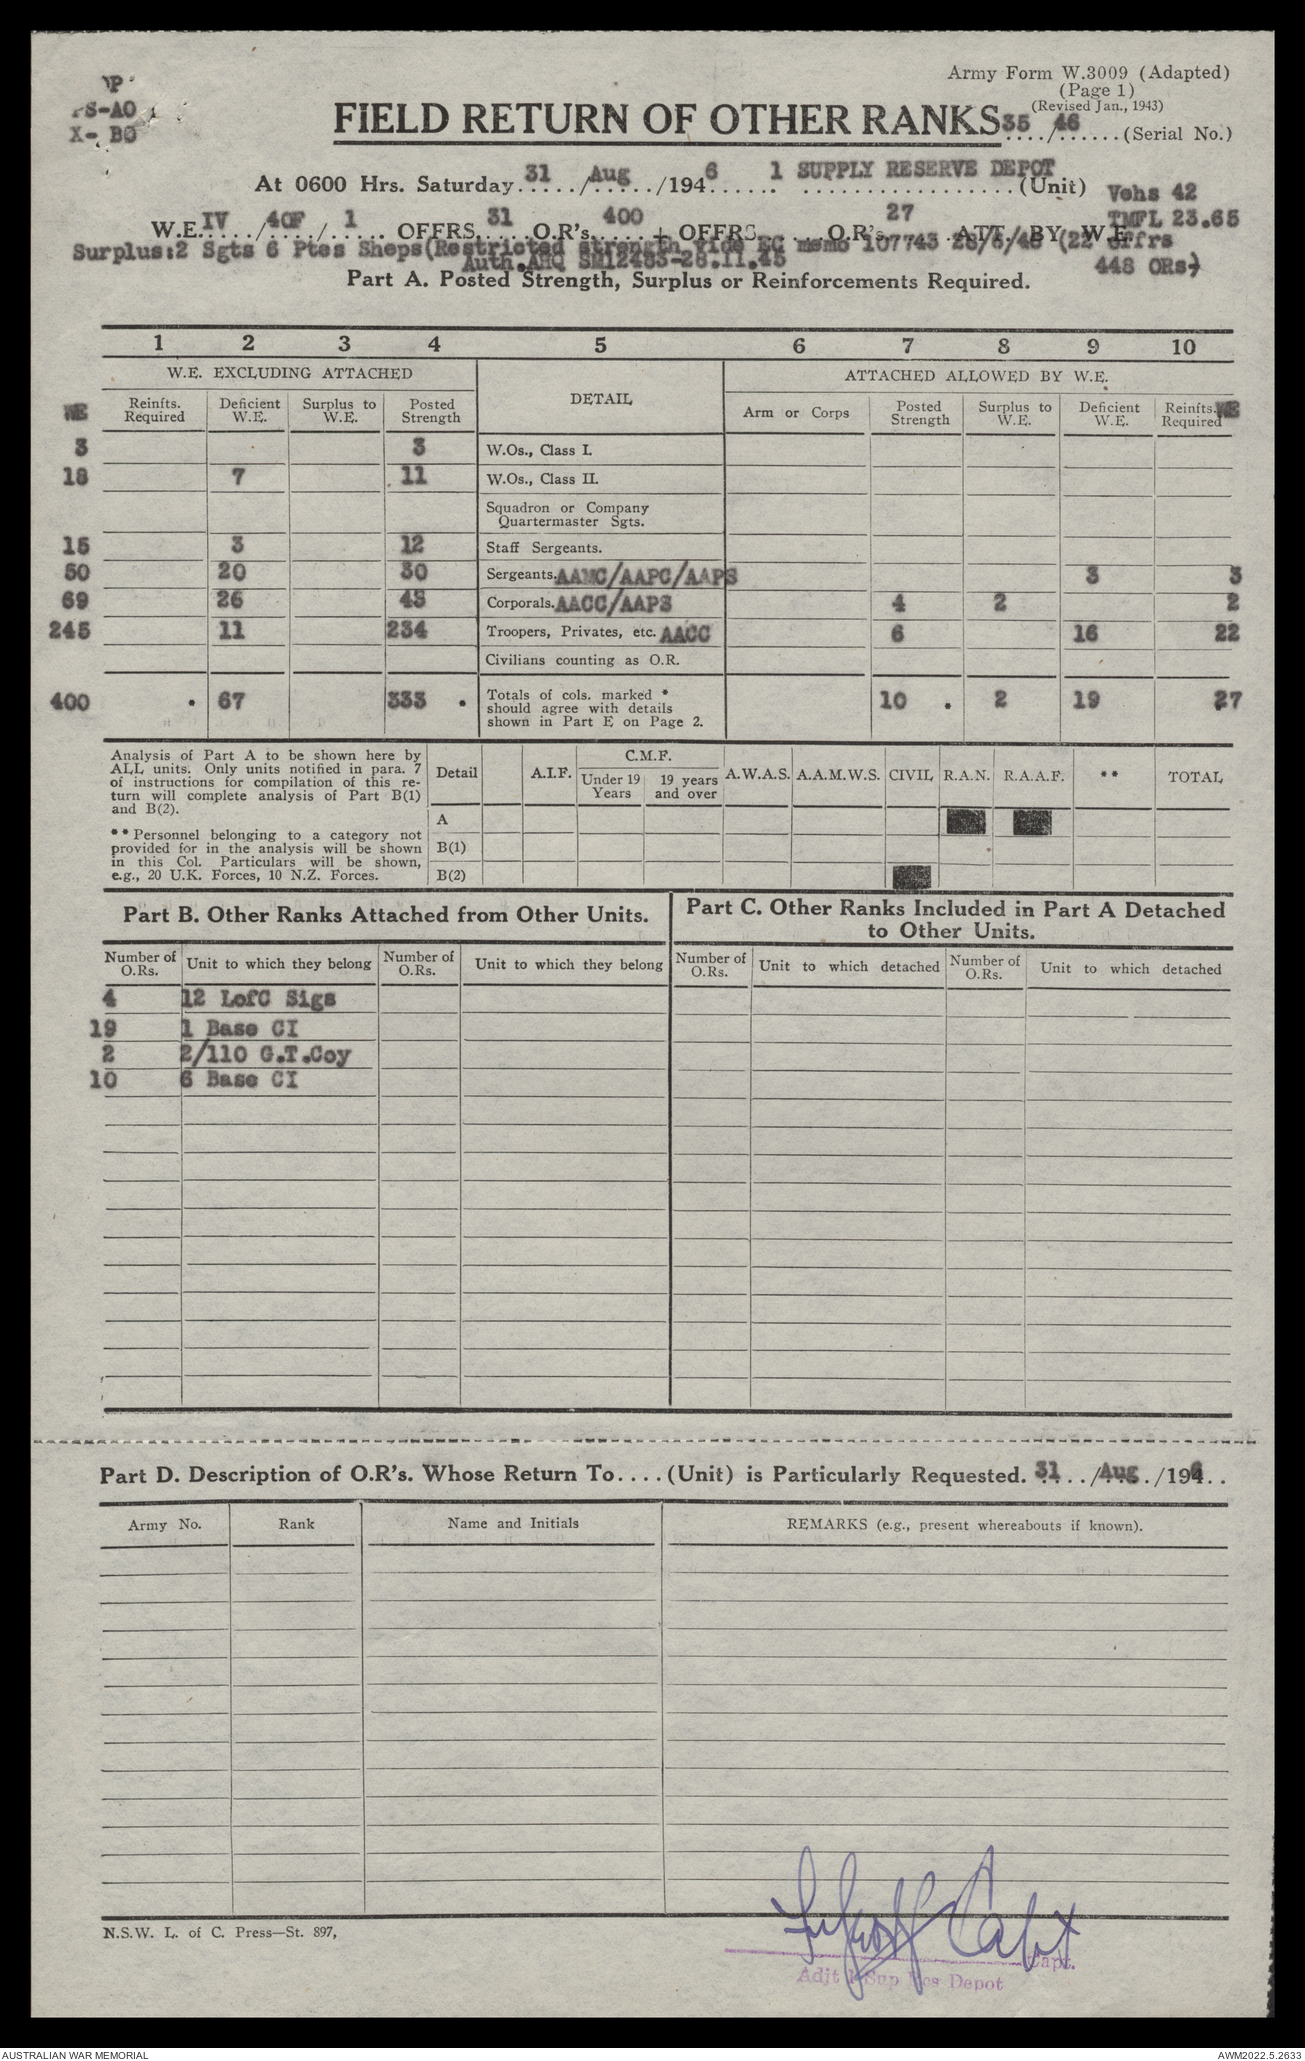 Army Form W.3009 (Adapted)
(Page 1)
(Revised Jan., 1943)
X- BO
FIELD RETURN OF OTHER RANKS 35/46 (Serial No.)
At 0600 Hrs. Saturday 31/Aug/1946 1 SUPPLY RESERVE DEPOT (Unit)
Vehs 42
W.E. IV/40F/1 OFFRS 31 O.R's 400 + OFFRS. O.R's 27 ATT. BY W.E.
TMFL 23.65
Surplus:2 Sgts 6 Ptes Sheps(Restricted strength vide EC memo 107743 28/6/46 (22 Offrs
Auth.AHQ SM12483-28.11.45
448 ORs)
Part A. Posted Strength, Surplus or Reinforcements Required.
1 2 3 4 5 6 7 8 9 10
W.E. EXCLUDING ATTACHED DETAIL ATTACHED ALLOWED BY W.E.
WE Reinfts. Required Deficient W.E. Surplus to W.E. Posted Strength Arm or Corps Posted Strength Surplus to W.E. Deficient W.E. Reinfts. Required WE
3 3 W.Os., Class I.
18 7 11 W.Os., Class II.
Squadron or Company
Quartermaster Sgts.
15 3 12 Staff Sergeants.
50 20 30 Sergeants. AAMC/AAPC/AAPS 3 3
69 26 43 Corporals. AACC/AAPS 4 2 2
245 11 234 Troopers, Privates, etc. AACC 6 16 22
Civilians counting as O.R.
400 * 67 333 * Totals of cols. marked * 10 * 2 19 27
should agree with details
shown in Part E on Page 2.
Analysis of Part A to be shown here by
ALL units. Only units notified in para. 7
of instructions for compilation of this re-
turn will complete analysis of Part B(1)
and B(2).
** Personnel belonging to a category not
provided for in the analysis will be shown
in this Col. Particulars will be shown,
e.g., 20 U.K. Forces, 10 N.Z. Forces.
Detail A.I.F. C.M.F. A.W.A.S. A.A.M.W.S. CIVIL R.A.N. R.A.A.F. ** TOTAL
Under 19 Years 19 years and over
A
B(1)
B(2)
Part B. Other Ranks Attached from Other Units.
Part C. Other Ranks Included in Part A Detached
to Other Units.
Number of O.Rs. Unit to which they belong Number of O.Rs. Unit to which they belong Number of O.Rs. Unit to which detached Number of O.Rs. Unit to which detached
4 12 LofC Sigs
19 1 Base CI
2 2/110 G.T.Coy
10 6 Base CI
Part D. Description of O.R's. Whose Return To....(Unit) is Particularly Requested. 31/Aug/1946
Army No. Rank Name and Initials REMARKS (e.g., present whereabouts if known).
N.S.W. L. of C. Press—St. 897,
Capt
Capt.
Adjt 1 Sup Res Depot
AUSTRALIAN WAR MEMORIAL
AWM2022.5.2633